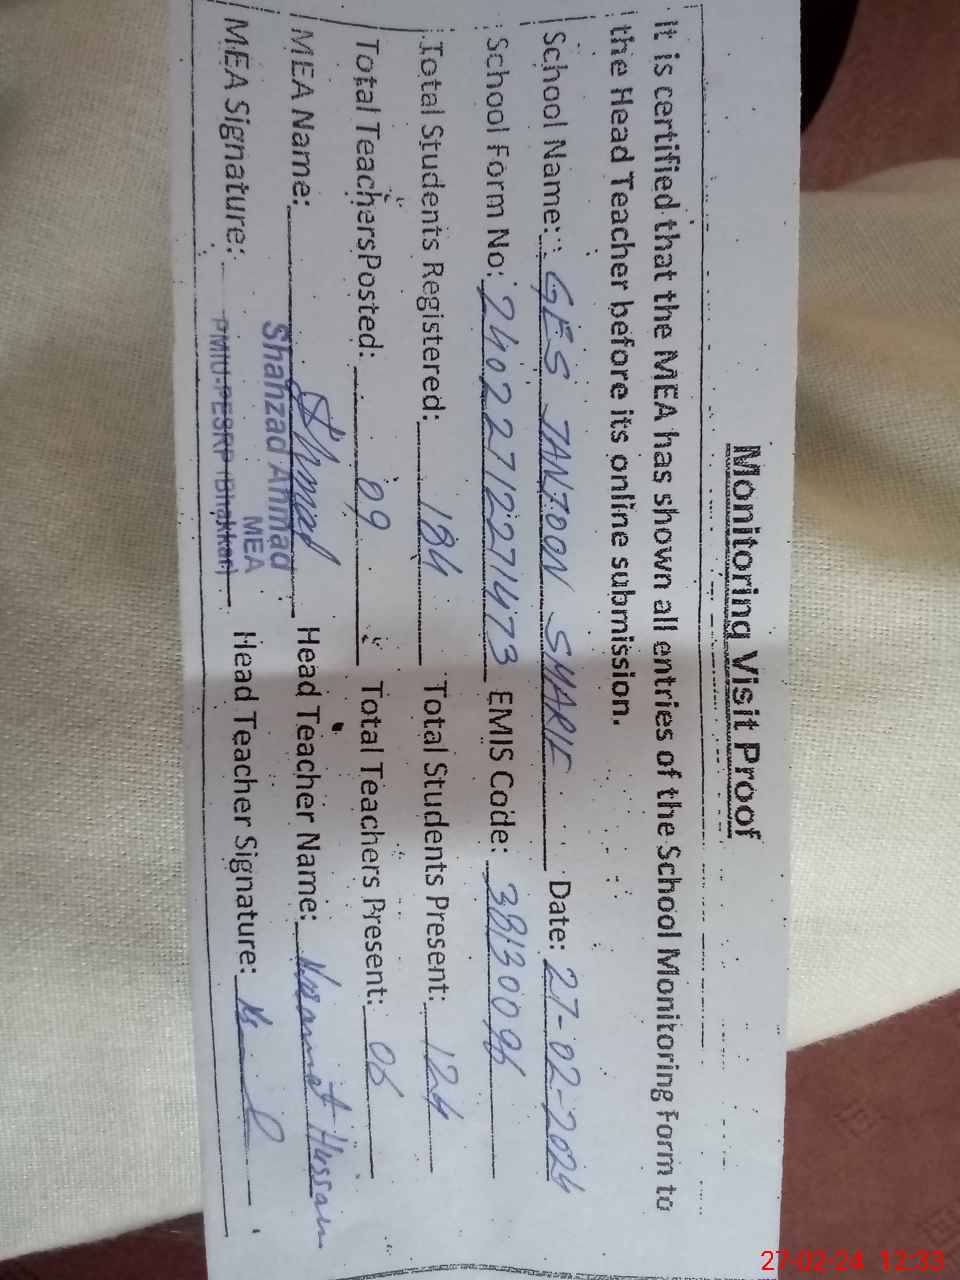 Monitoring Visit Proof
It is certified that the MEA has shown all entries of the School Monitoring Form to
the Head Teacher before its online submission.
School Name: GES JANJOON SHARIF Date: 27-02-2024
School Form No: 24022712271473 EMIS Code: 38130096
Total Students Registered: 184 Total Students Present: 124
Total Teachers Posted: 09 Total Teachers Present: 06
MEA Name: Ahmad Head Teacher Name: Hussain
Shahzad Ahmad
MEA
MEA Signature: PMIU-PESRP (Bhakkar) Head Teacher Signature:
27-02-24 12:33